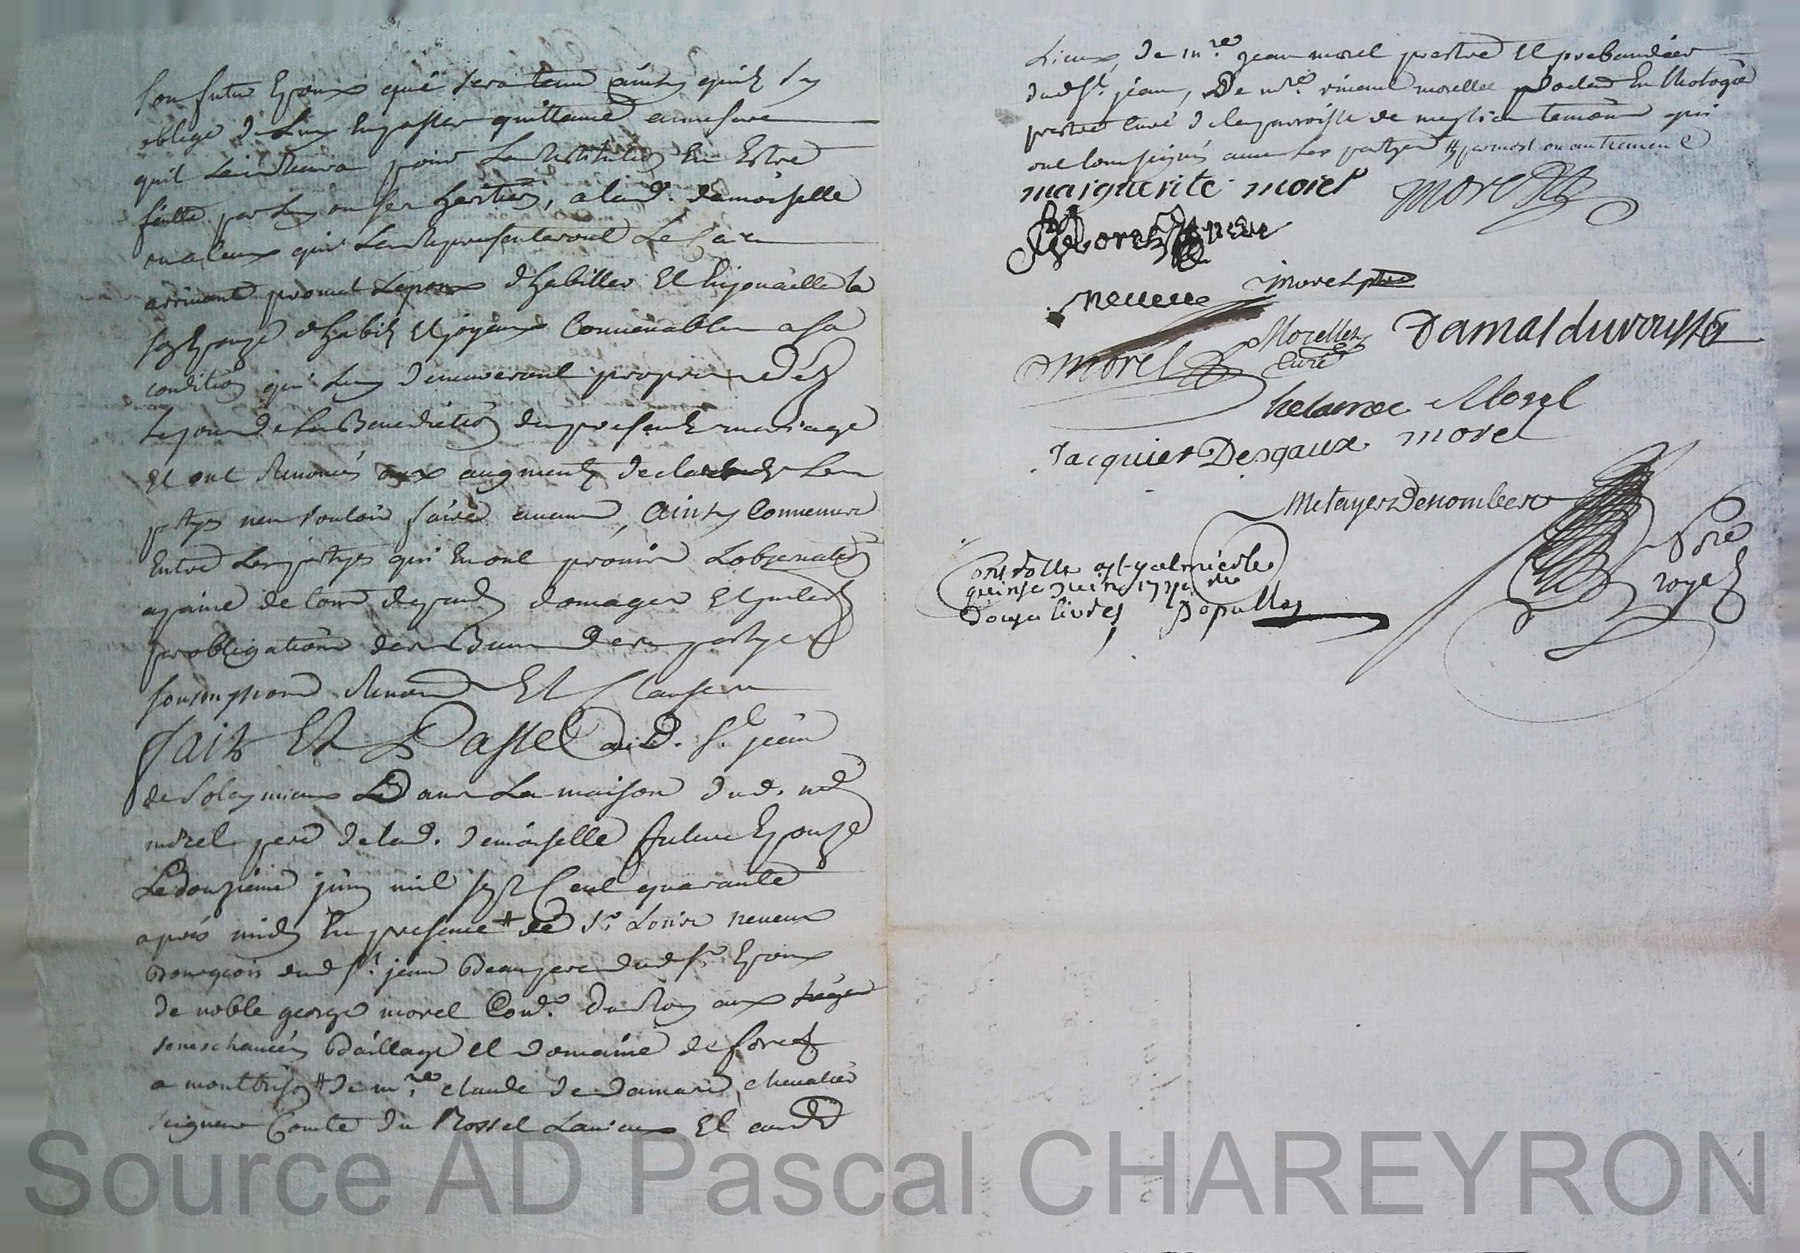 son futur Epoux qui sera tenu ainsy quil sy
oblige de luy en passer quittance a mesure
quil recevra pour la restitution En Estre
faitte par luy ou ses hertiers, a lad. demoiselle
ou a ceux qui la representeront le cas
arrivant promet Lepoux dhabiller Et Enjouailler la
future Epouze dhabits Et joyaux Convenables a sa
condition qui luy demeureront propres des
le jour de la Benediction du present mariage
Et ont Renoncés aux augments declarants les
partys nen vouloir faire aucuns, ainsy Convenu
Entre les partys qui En ont promis Lobservation
a peine de tous depends domages Et interests
par obligations des Biens des partyes
soumissions Renon Et Clauses
fait Et Passé aud. St. jean
de Soleymieux Dans la maison dud. no
morel pere de lad. demoiselle future Epouze
Le douzieme juin mil sept Cent quarante
aprés midy En presence # de Sr. Louis neveux
Bourgeois dud St. jean Beaupere dud Sr. Epoux
de noble george morel Cons. du Roy aux sieges
seneschaucée Baillage Et domaine de forest
a montbrison # de mre. claude de damas chevalier
seigneur Comte du Rossel Lavieux Et autres
Lieux, de mre. jean morel prestre Et prebandier
dud St. jean, De mre. vincent morellet Docteur En theologie
prestre curé de la parroisse de temoins qui
ont soussignés avec les partyes # par most ou autrement
marguerite morel morel
Morel neveu
neveu morel ptre
Morel Morellet curé Damas du rousset
helaine Morel
Jacquier Desgaux morel
Metayer Desombers
Pore
royal
Controllé a St galmier le
quinse juin 1740 Reçu
Douze livres Depulley
Source AD Pascal CHAREYRON